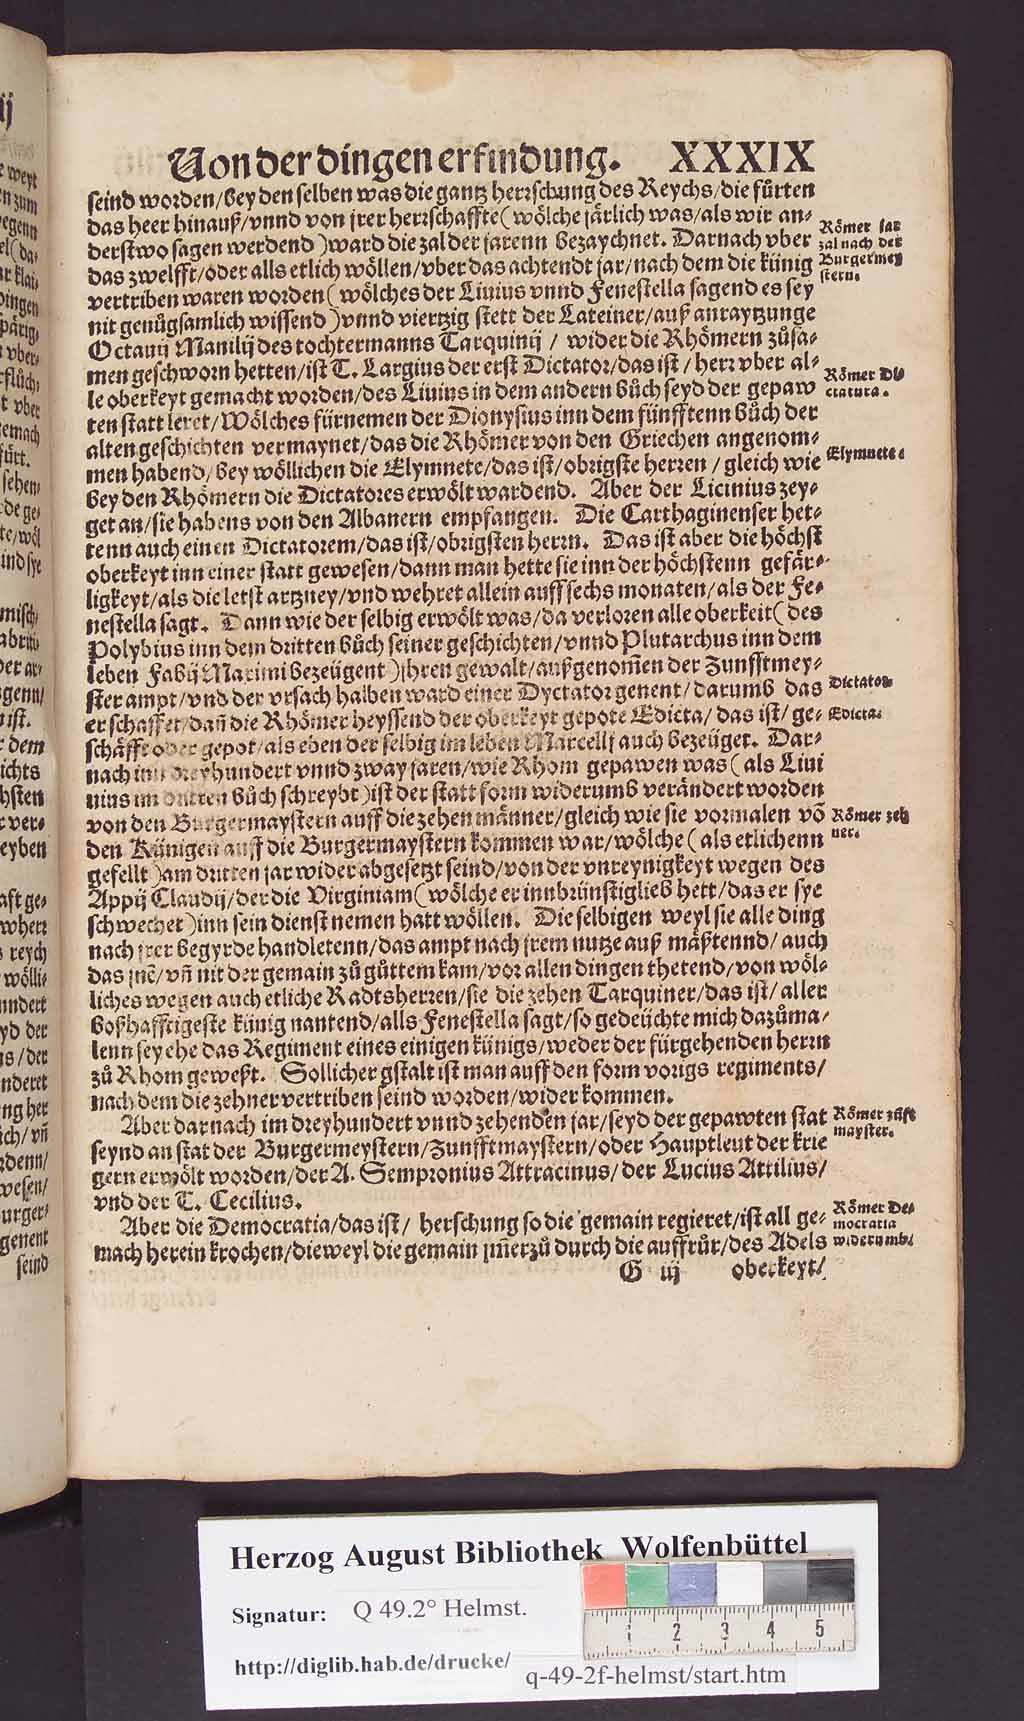 Von der dingen erfindung. XXXIX
seind worden/ bey den selben was die gantz herrschung des Reychs/ die fürten
das heer hinauß/ vnnd von jrer herrschaffte ( wölche järlich was/ als wir an-
derstwo sagen werdend ) ward die zal der jarenn bezaychnet. Darnach vber
das zwelfft/ oder alls etlich wöllen/ vber das achtendt jar/ nach dem die künig
vertriben waren worden ( wölches der Liuius vnnd Fenestella sagend es sey
nit genůgsamlich wissend ) vnnd viertzig stett der Lateiner/ auß anraytzunge
Octauij Manilij des tochtermanns Tarquinij / wider die Rhömern zůsa-
men geschworn hetten/ ist T. Largius der erst Dictator/ das ist / herr vber al-
le oberkeyt gemacht worden/ des Liuius in dem andern bůch seyd der gepaw
ten statt leret/ Wölches fürnemen der Dionysius inn dem fünfftenn bůch der
alten geschichten vermaynet/ das die Rhömer von den Griechen angenom-
men habend/ bey wöllichen die Elymnete/ das ist/ obrigste herren / gleich wie
bey den Rhömern die Dictatores erwölt wardend. Aber der Licinius zey-
get an/ sie habens von den Albanern empfangen. Die Carthaginenser het-
tenn auch einen Dictatorem/ das ist/ obrigsten herrn. Das ist aber die höchst
oberkeyt inn einer statt gewesen/ dann man hette sie inn der höchstenn gefär-
ligkeyt/ als die letst artzney/ vnd wehret allein auff sechs monaten/ als der Fe-
nestella sagt. Dann wie der selbig erwölt was/ da verloren alle oberkeit ( des
Polybius inn dem dritten bůch seiner geschichten/ vnnd Plutarchus inn dem
leben Fabij Maximi bezeügent ) jhren gewalt/ außgenom̃en der Zunfftmey-
ster ampt/ vnd der vrsach halben ward einer Dyctator genent/ darumb das
er schaffet/ dañ die Rhömer heyssend der oberkeyt gepote Edicta/ das ist/ ge-
schäfft oder gepot/ als eben der selbig im leben Marcelli auch bezeüget. Dar-
nach inn dreyhundert vnnd zway jaren/ wie Rhom gepawen was ( als Liui
uius im dritten bůch schreybt ) ist der statt form widerumb verändert worden
von den Burgermaystern auff die zehen männer/ gleich wie sie vormalen võ
den Künigen auff die Burgermaystern kommen war/ wölche ( als etlichenn
gefellt ) am dritten jar wider abgesetzt seind/ von der vnreynigkeyt wegen des
Appij Claudij/ der die Virginiam ( wölche er innbrünstiglieb hett/ das er sye
schwechet ) inn sein dienst nemen hatt wöllen. Die selbigen weyl sie alle ding
nach jrer begyrde handletenn/ das ampt nach jrem nutze auß mäßtennd/ auch
das jnẽ/ vñ nit der gemain zů gůttem kam/ vor allen dingen thetend/ von wöl-
liches wegen auch etliche Radtsherren/ sie die zehen Tarquiner/ das ist/ aller
boßhafftigeste künig nantend/ alls Fenestella sagt/ so gedeüchte mich dazůma-
lenn sey ehe das Regiment eines einigen künigs/ weder der fürgehenden herrn
zů Rhom geweßt. Sollicher gstalt ist man auff den form vorigs regiments/
nach dem die zehner vertriben seind worden/ wider kommen.
Aber darnach im dreyhundert vnnd zehenden jar/ seyd der gepawten stat
seynd an stat der Burgermeystern/ Zunfftmaystern/ oder Hauptleut der krie
gern erwölt worden/ der A. Sempronius Attracinus/ der Lucius Attilius/
vnd der T. Cecilius.
Aber die Democratia/ das ist/ herschung so die gemain regieret/ ist all ge-
mach herein krochen/ dieweyl die gemain jm̃erzů durch die auffrůr/ des Adels
G iij oberkeyt/
Römer jar
zal nach der
Burgermey
stern.
Römer Di-
ctatura.
Elymnete.
Dictator
Edicta.
Römer zeh
ner.
Römer zůft
mayster.
Römer De-
mocratia
widerumb.
Herzog August Bibliothek Wolfenbüttel
Signatur: Q 49.2° Helmst.
http://diglib.hab.de/drucke/ q-49-2f-helmst/start.htm
1 2 3 4 5